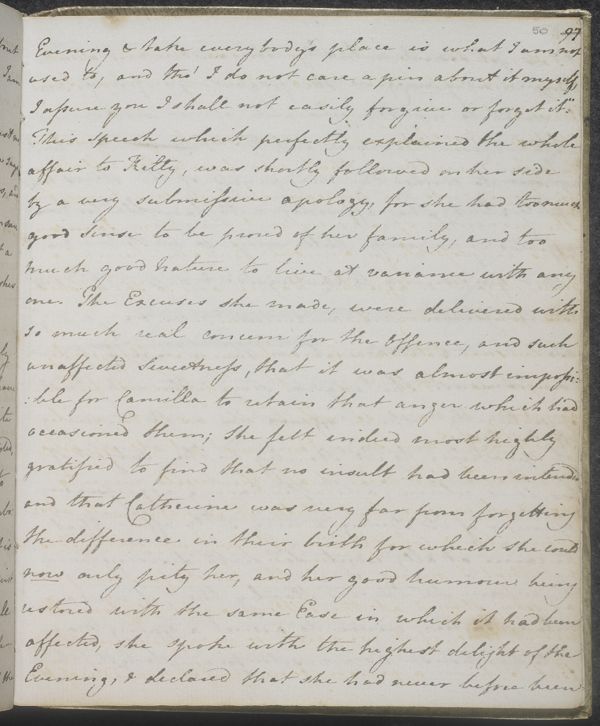 50 97
Evening & take everybody's place is what I am not
used to, and tho' I do not care a pin about it myself,
I assure you I shall not easily forgive or forget it".
This speech which perfectly explained the whole
affair to Kitty, was shortly followed on her side
by a very submissive apology, for she had too much
good Sense to be proud of her family, and too
much good Nature to live at variance with any
one. The Excuses she made, were delivered with
so much real concern for the Offence, and such
unaffected Sweetness, that it was almost impossi:
:ble for Camilla to retain that anger which had
occasioned them; She felt indeed most highly
gratified to find that no insult had been intended
and that Catherine was very far from forgetting
the difference in their birth for which she could
now only pity her, and her good humour being
restored with the same Ease in which it had been
affected, she spoke with the highest delight of the
Evening, & declared that she had never before been